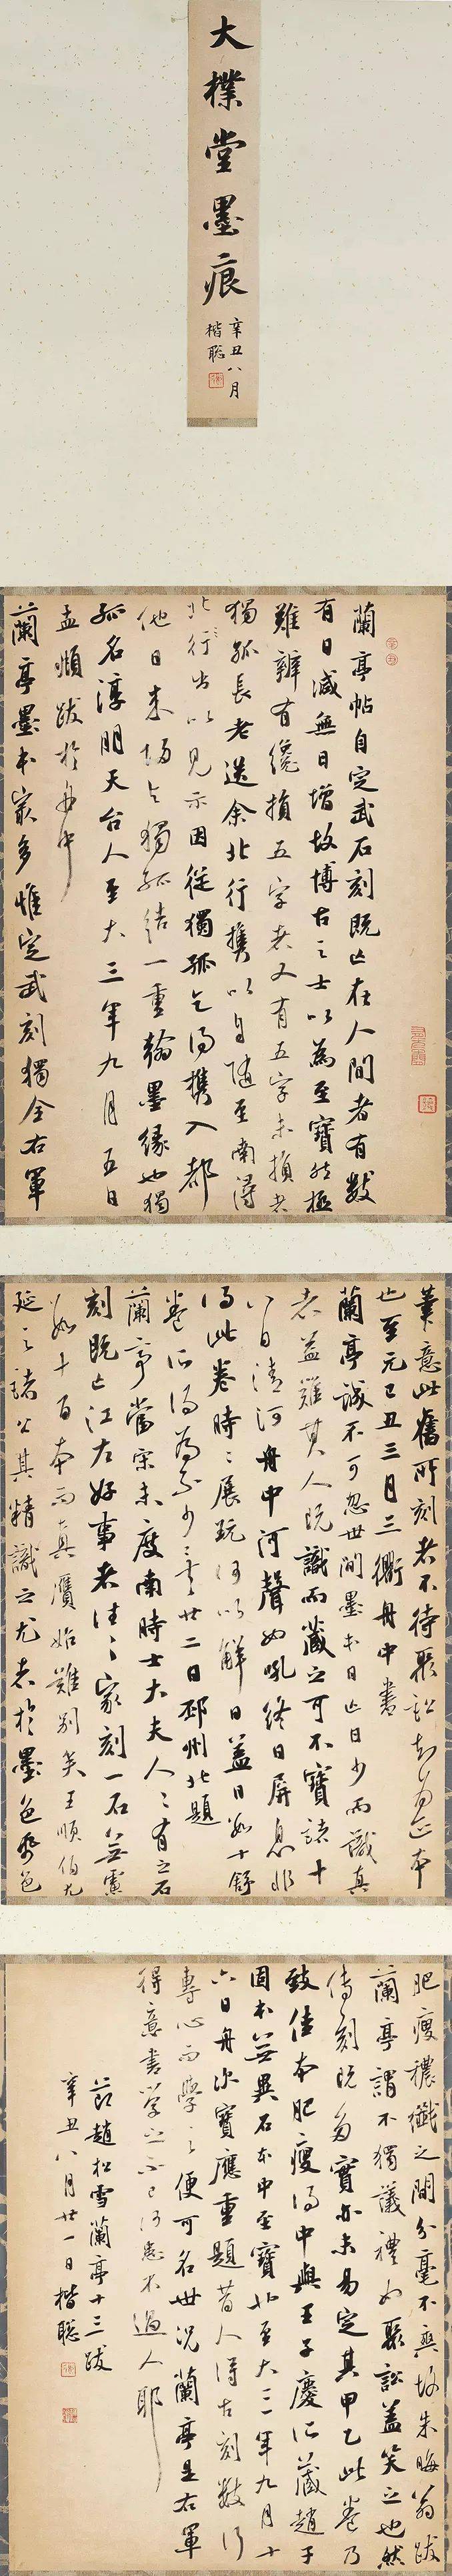 大樸堂墨痕
辛丑八月
楷聡
蘭亭帖自定武石刻既亡在人間者有數
有日減無日增故博古之士以為至寶然極
難辨有鑱損五字者又有五字未損者
獨孤長老送余北行攜以自隨至南潯
北行出以見示因從獨孤乞得攜入都
他日来歸与獨孤結一重翰墨緣也獨
孤名淳朋天台人至大三年九月五日
孟頫跋於舟中
蘭亭墨本最多惟定武刻獨全右軍
筆意此舊所刻者不待聚訟知為正本
也至元己丑三月三衢舟中書
蘭亭誠不可忽世間墨本日亡日少而識真
者益難其人既識而藏之可不寶諸十
八日清河舟中河聲如吼終日屏息非
得此卷時〻展玩何以解日蓋日數十舒
卷所得為不少矣廿二日邳州北題
蘭亭當宋未度南時士大夫人〻有之石
刻既亡江左好事者往〻家刻一石無慮
數十百本而真贗始難別矣王順伯尤
延之諸公其精識之尤者於墨色紙色
肥瘦穠纖之間分毫不爽故朱晦翁跋
蘭亭謂不獨議禮如聚訟蓋笑之也然
傳刻既多實亦未易定其甲乙此卷乃
致佳本肥瘦得中與王子慶所藏趙子
固本無異石本中至寶也至大三年九月十
六日舟次寶應重題昔人得古刻數行
專心而學之便可名世況蘭亭是右軍
得意書學之不已何患不過人耶
節趙松雪蘭亭十三跋
辛丑八月廿一日楷聡